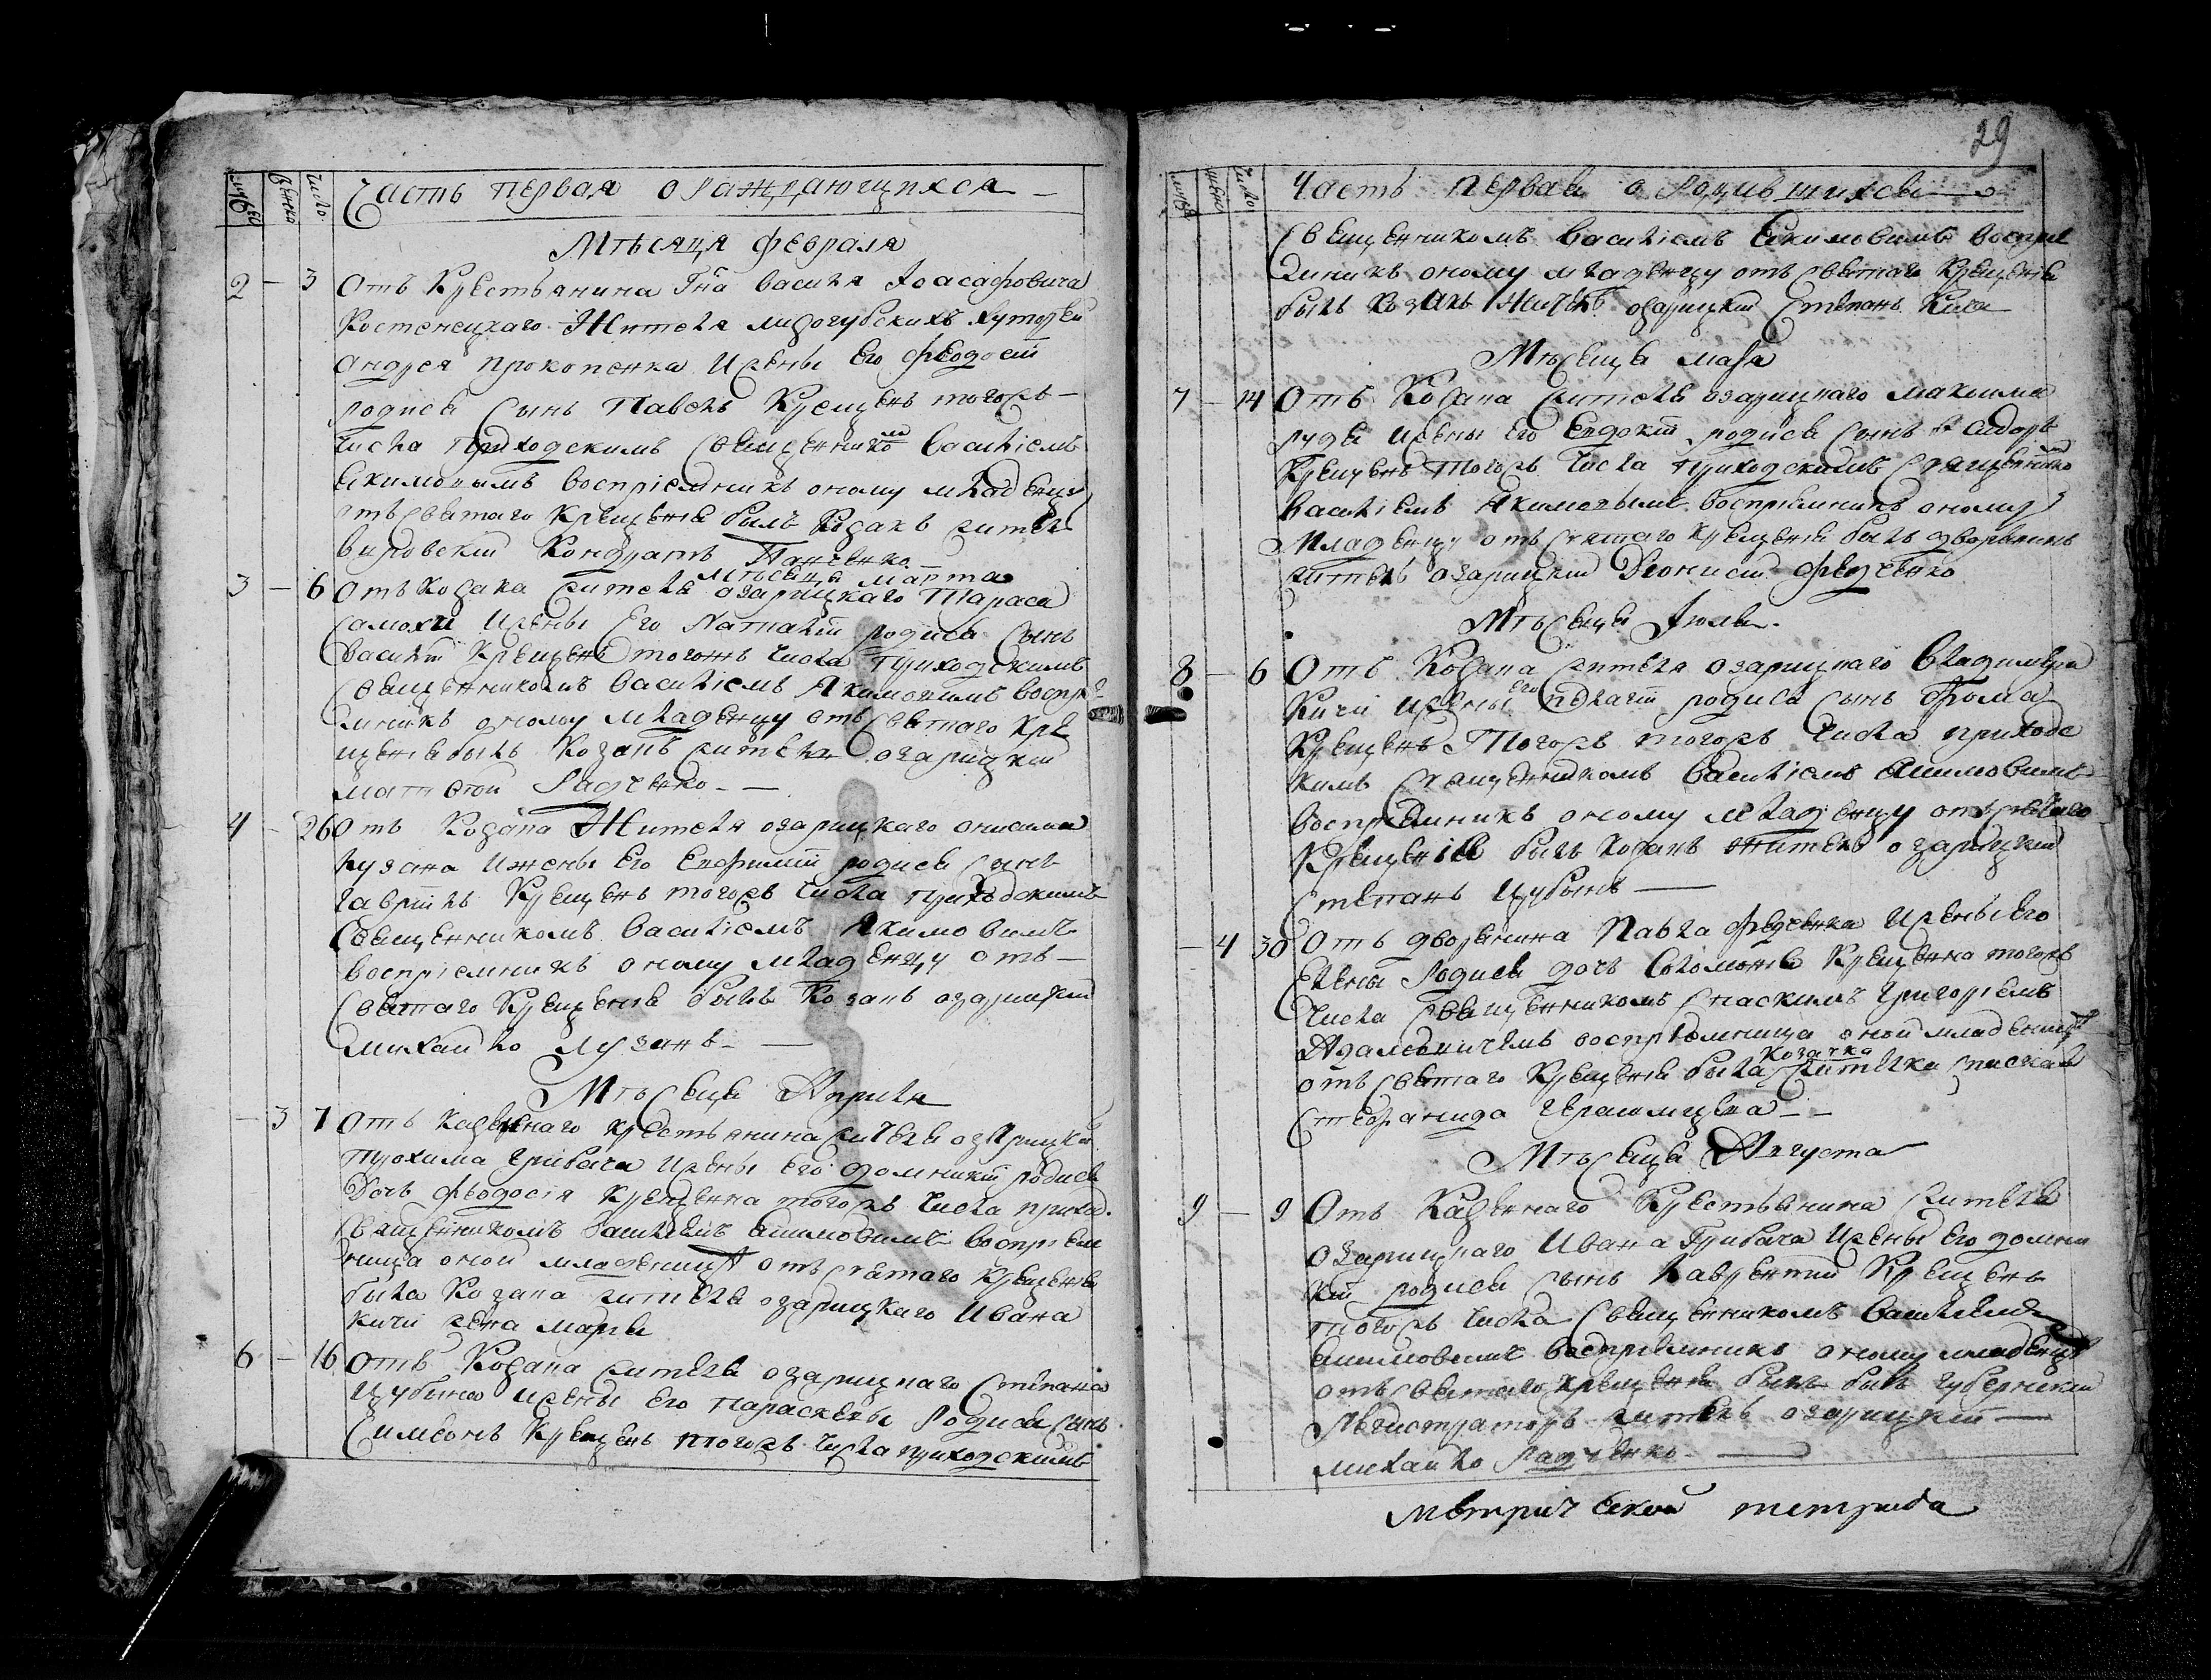 Часть первая о раждающихся
Мѣсяца февраля
2 – 3 Отъ Крестьянина Гна василя Іоасафовича
Костенецкаго Жителя лизогубскихъ хуторей
андрея прокопенкаИжены Его феодосіи
родися Сынъ Павелъ Крещенъ тогожъ
числа Приходскимъ Священником василіемъ
Екимовымъ воспріемникъ оному младенцу
отъ святаго Крещенія былъ Козакъ жител
вировскій Кондратъ Панченко
Мѣсяца марта
3 – 6 Отъ Козака жителя озарицкаго Тараса
Самохи Ижены Его Наталіи родися Сынъ
василій Крещенъ тогожъ числа приходскимъ
Священникомъ василіемъ Якимовимъ воспріе
мникъ оному младенцу отъ святаго Кре
щенія былъ Козакъ жителъ озарицкій
матвей Радченко
4 – 26 Отъ Козака Жителя озарицкаго онисима
лузана Ижены Его Евфиміи родися сынъ
гавріилъ Крещенъ тогожъ числа приходскимъ
Священникомъ василіемъ Якимовимъ
воспріемникъ оному младенцу отъ
святаго Крещенія былъ Козакъ озарицкій
михайло лузанъ
Мѣсяца Априля
– 3 7 Отъ Казеннаго крестьянина жителя озарицка
трохима Грибача Ижены Его домникіи родися
Дочъ феодосія Крещенна тогожъ числа приход.
священникомъ василіемъ акимовимъ воспріем
ница оной младеницѣ отъ святаго Крещенія
была Козака жителя озарицкаго Ивана
кичи жена марія
6 – 16 Отъ Козака жителя озарицкаго Стефана
Цубыню Ижены Его параскевы Родися сынъ
Симеонъ Крещенъ тогожъ числа приходскимъ
29
Часть первая о родившихся
Священникомъ василіемъ Екимовимъ воспріе
мникъ оному младенцу отъ святаго Крещенія
былъ козакъ Жителъ озарицкій Стефанъ Кича
Мѣсяца мая
7 – 14 Отъ Козака жителя озарицкаго максима
руди Ижены Его Евдокіи родися сынъ Сидоръ
Крещенъ тогожъ числа приходскимъ Священнико
василіемъ Якимовымъ воспріемникъ оному
младенцу отъ святаго крещенія былъ дворянинъ
жителъ озарицкій Діонисій федченко
Мѣсяца Іюля
8 – 6 Отъ Козака жителя озарицкаго владимира
Кичи Ижены его пелагіи родися сынъ фома
Крещенъ тогожъ тогожъ числа приходс
кимъ священникомъ василіемъ акимовимъ
воспріемникъ оному младенцу отъ святаго
Крещенія былъ козакъ жителъ озарицкій
Стефанъ Цубынъ
– 4 30 Отъ дворянина Павла федченка Ижены Его
Елены Родися дочъ Соломонія Крещенна тогожъ
числа Священникомъ спаскимъ Григоріемъ
Адамовичемъ воспріемница оной младеницѣ
отъ святаго Крещенія была Козачка жителка спаская
Стефанида Герасимцева
Мѣсяца Августа
9 – 9 Отъ Казеннаго Крестьянина жителя
озарицкаго Ивана Грибача Ижены Его домни
кіи родися сынъ лаврентій Крещенъ
тогожъ числа Священникомъ василіемъ
акимовимъ воспріемникъ оному младенцу
отъ святаго Крещенія былъ былъ губернскій
Регистраторъ жителъ озарицкій
михайло Радченко
метрической тетради